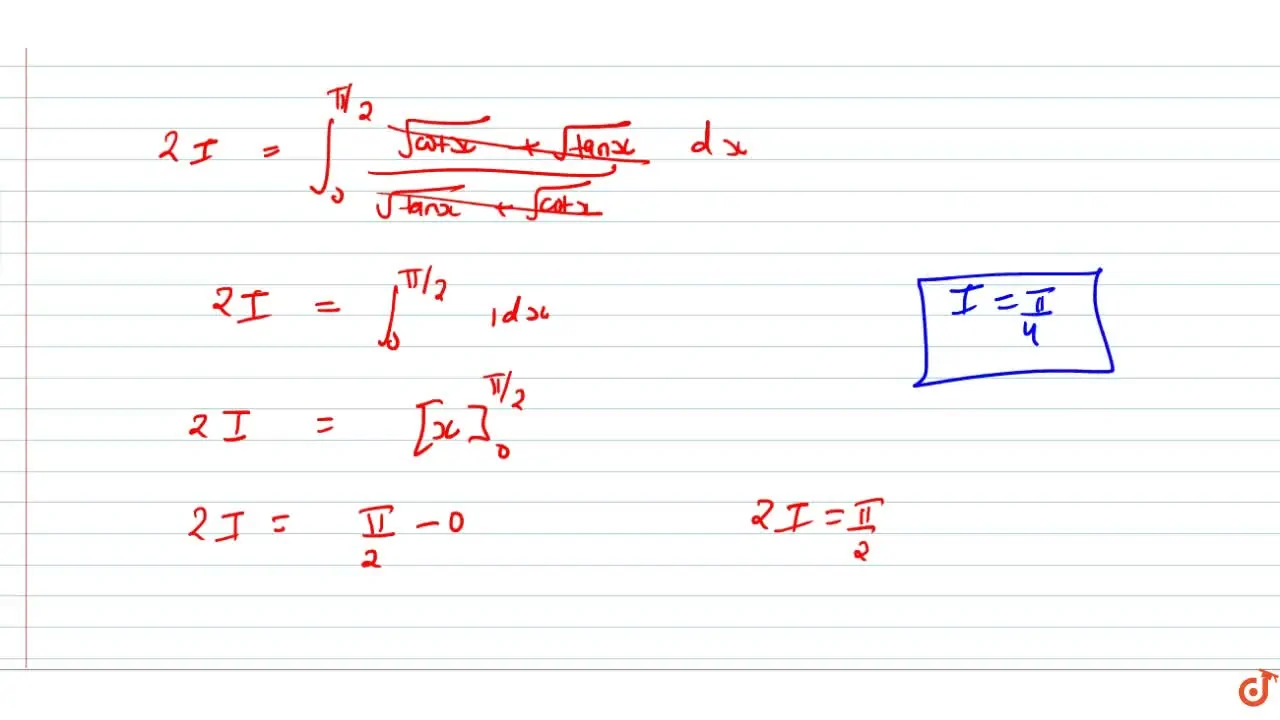 2I = ∫₀^{π/2} (√cot x + √tan x)/(√tan x + √cot x) dx
2I = ∫₀^{π/2} 1dx
I = π/4
2I = [x]₀^{π/2}
2I = π/2 - 0
2I = π/2